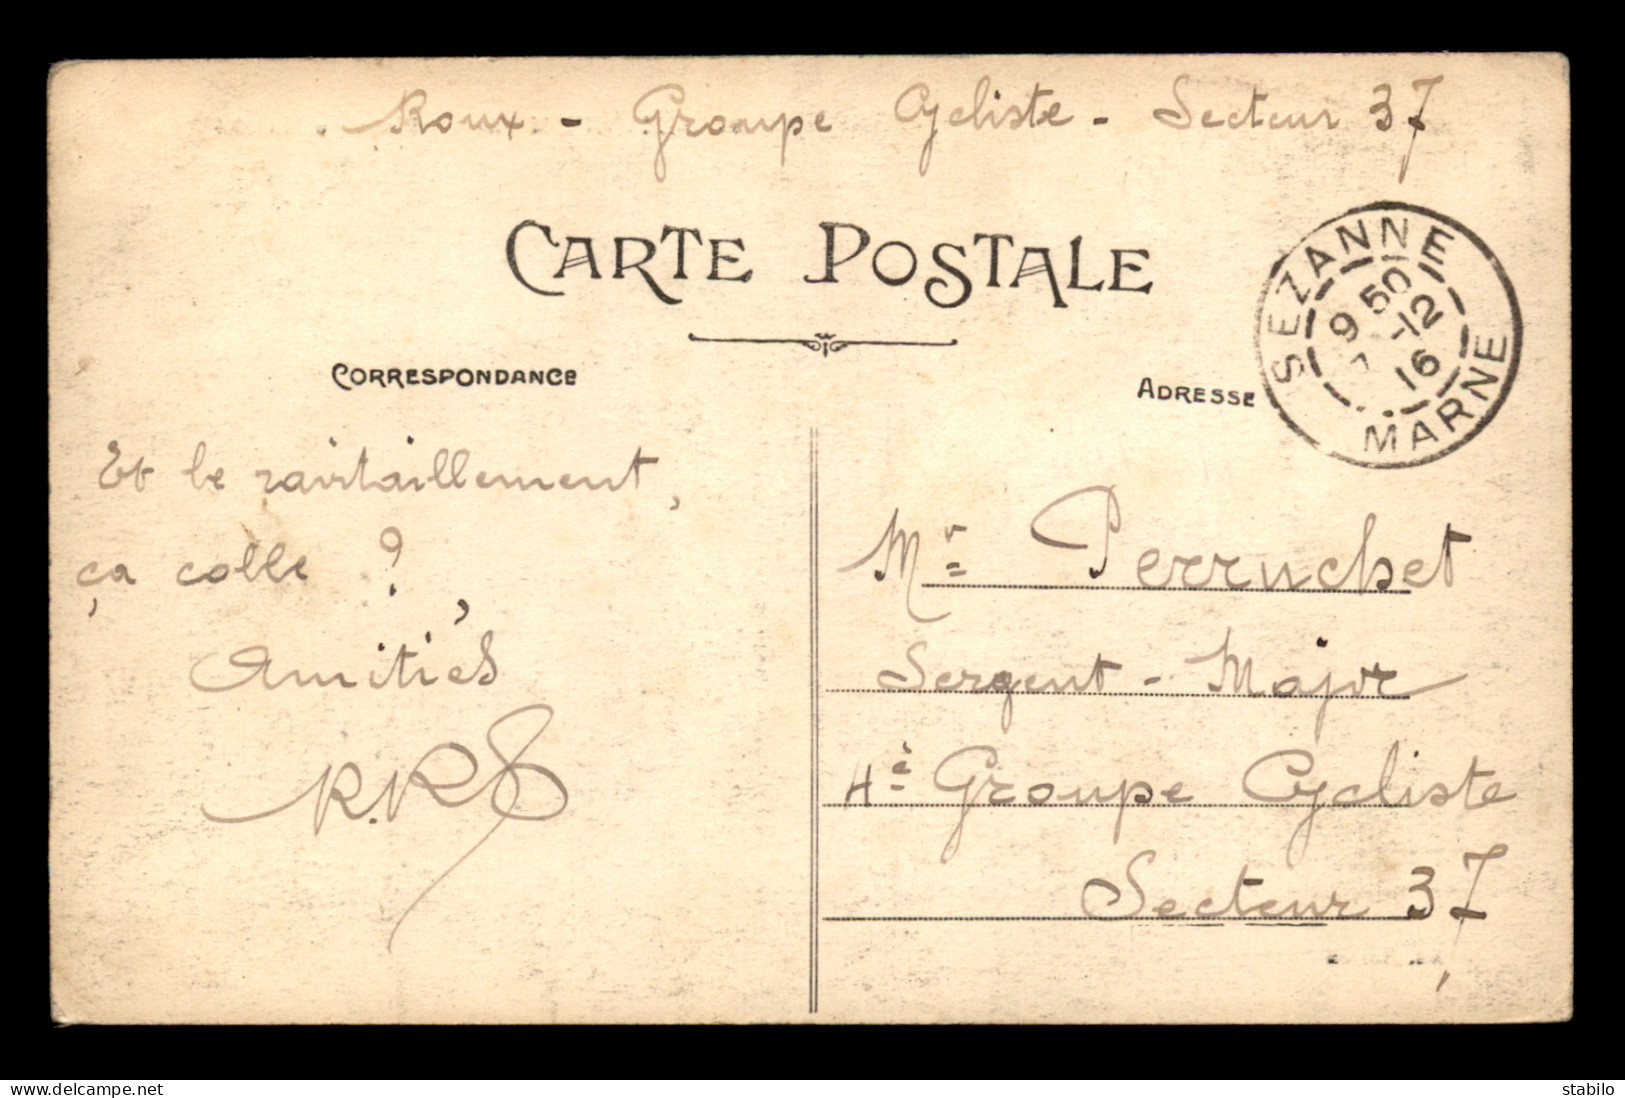 Roux - Groupe Cycliste - Secteur 37
CARTE POSTALE
CORRESPONDANCE
ADRESSE
SEZANNE
9 50
-12
16
MARNE
Et le ravitaillement,
ça colle ?
Amitiés
R.R
Mr Perruchet
Sergent-Major
4e Groupe Cycliste
Secteur 37
www.delcampe.net
stabilo